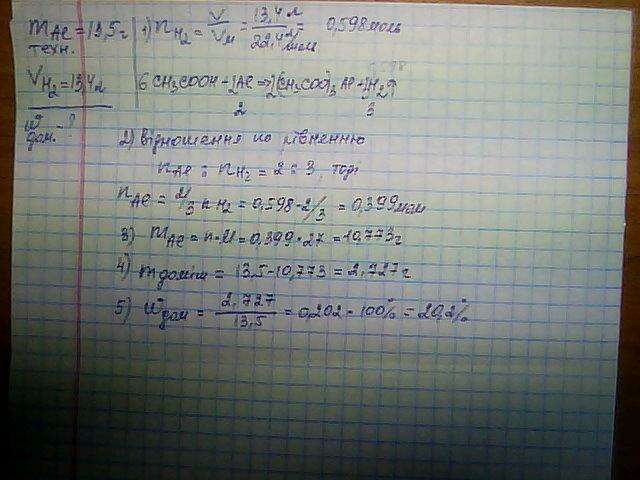 m Al = 13,5 г
техн.
V H₂ = 13,4 л
W дом. - ?
1) n H₂ = V/Vм = 13,4 л / 22,4 л/моль = 0,598 моль
6 CH₃COOH + 2Al => 2(CH₃COO)₃ Al + 3H₂↑
2 3
2) Відношення по рівненню
n Al : n H₂ = 2 : 3, тоді
n Al = 2/3 n H₂ = 0,598 · 2/3 = 0,399 моль
3) m Al = n · M = 0,399 · 27 = 10,773 г
4) m доміш = 13,5 - 10,773 = 2,727 г
5) W дом = 2,727 / 13,5 = 0,202 · 100% = 20,2%